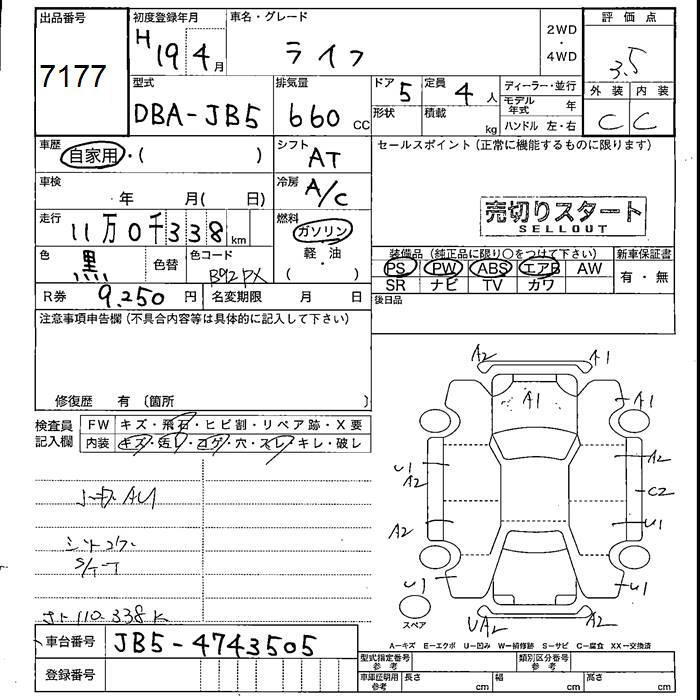 出品番号 初度登録年月 車名・グレード 評価点
7177 H19 4月 ライフ 2WD・4WD 3.5
型式 排気量 ドア 定員 ディーラー・並行 外装 内装
DBA-JB5 660cc 5 4人 モデル年式 年 C C
形状 積載 kg ハンドル 左・右
車歴 自家用・( ) シフト AT セールスポイント(正常に機能するものに限ります)
車検 年 月( 日) 冷房 A/C
売切りスタート
SELLOUT
走行 11万0千338km 燃料 ガソリン
軽・油
( )
色 黒 色替 色コード B92PX
装備品(純正品に限り○をつけて下さい) 新車保証書
PS PW ABS エアB AW 有・無
SR ナビ TV カワ
R券 9,250円 名変期限 月 日 後日品
注意事項申告欄(不具合内容等は具体的に記入して下さい)
修復歴 有 (箇所 )
検査員記入欄 FW キズ・飛石・ヒビ割・リペア跡・X要
内装 キズ・汚レ・コゲ・穴・スレ・キレ・破レ
A2 A1
A1 A1
U1 A2 A2
C2
A2 U1
U1 U1
UA2 A2
スペア
A=キズ E=エクボ U=凹み W=補修跡 S=サビ C=腐食 XX=交換済
110.338K
車台番号 JB5-4743505
登録番号
型式指定番号参考 類別区分番号参考
車庫証明用参考 長さ cm 幅 cm 高さ cm